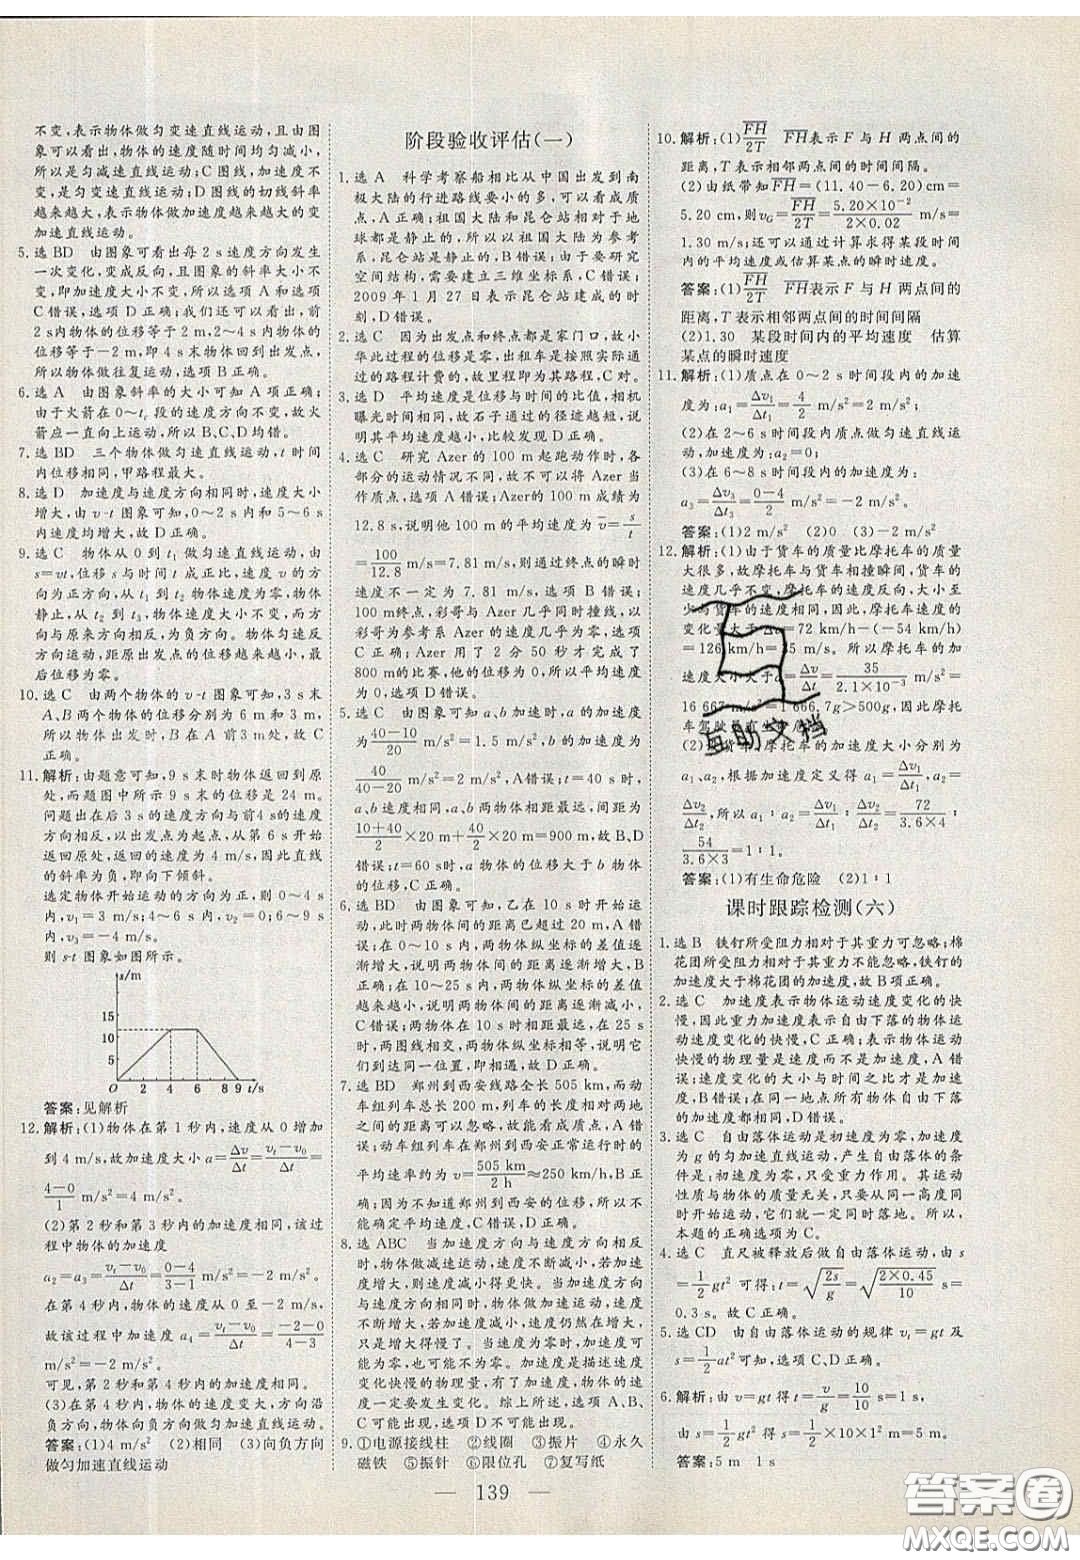 不变，表示物体做匀变速直线运动，且由图
象可以看出，物体的速度随时间均匀减小，
所以是匀减速直线运动；D 图线的切线斜率
越来越大，表示物体做加速度越来越大的变
加速直线运动。
5.选 BD 由图象可看出每 2 s 速度方向发生
一次变化，变成反向，且图象的斜率大小不
变，即加速度大小不变，所以选项 A 和选项
C 错误，选项 D 正确。我们还可以看出，前
2 s内物体的位移等于 2 m，2～4 s内物体的
位移等于－2 m，即 4 s末物体回到出发点，
所以物体做往复运动，选项 B 正确。
6.选 A 由图象斜率的大小可知 A 项正确；
由于火箭在 0～t
段的速度方向不变，故火
箭应一直向上运动，所以 B、C、D 均错。
7.选 BD 三个物体做匀速直线运动，t 时间
内位移相同，甲路程最大。
8.选 D 加速度与速度方向相同时，速度大小
增大，由 v-t 图象可知，0～2 s内和 5～6 s
内速度均增大，故 D 正确。
9.选 C 物体从 0 到 t₁ 做匀速直线运动，由
s＝vt，位移与时间 t 成正比，速度的方向
为正方向，从 t₁ 到 t₂，物体速度为零，物体
静止，从 t₂ 到 t₃，物体速度大小不变，而方
向与原来方向相反，为负方向。物体匀速反
方向运动，距原出发点的位移越来越小，最
后位移为零。
10.选 C 由两个物体的 v-t 图象可知，3 s末
A、B两个物体的位移分别为 6 m和 3 m，
由于出发点相同，所以 A 在 B 前3 m处，故 C
正确。
11.解析：由题意可知，9 s末时物体返回到原
处，而题图中所示 9 s末的位移是 24 m。
问题出在后 3 s的速度方向与前4 s的速度
方向相反，以出发点为起点，从第 6 s开始
返回原处，速度为 4 m/s，因此直线
的斜率为负，即向下倾斜。
选定物体开始运动的方向为正，则 0～
4 s内，v₁＝3 m/s，4～6 s内，v₂＝0，6～9 s内，
v₃＝－4 m/s。
则 s-t 图象如图所示。
s/m
15
10
5
O 2 4 6 8 9 t/s
答案：见解析
12.解析：(1)物体在第 1 秒内，速度从 0 增加
到 4 m/s，故加速度大小 a＝Δv/Δt＝(vₜ－v₀)/Δt＝
(4－0)/1 m/s²＝4 m/s²。
(2)第 2 秒和第 3 秒内的加速度相同，该过
程中物体的加速度
a₂＝a₃＝(vₜ－v₀)/Δt＝(0－4)/(3－1) m/s²＝－2 m/s²。
在第 4 秒内，物体的速度从 0 至－2 m/s，
故该过程中加速度 a₄＝(vₜ－v₀)/Δt＝(－2－0)/(4－3)
m/s²＝－2 m/s²。
可见，第 2 秒和第 4 秒内的加速度相同。
(3)在第 4 秒内，物体的速度变大，方向沿
负方向，物体向负方向做匀加速直线运动。
答案：(1)4 m/s² (2)相同 (3)向负方向
做匀加速直线运动
阶段验收评估(一)
1.选 A 科学考察船相比从中国出发到南
极大陆的行进路线要小很多，可以看成质
点，A 正确；祖国大陆和昆仑站相对于地
球都是静止的，所以以祖国大陆为参考
系，昆仑站是静止的，B 错误；由于要研究
空间结构，需要建立三维坐标系，C 错误；
2009 年 1 月 27 日表示昆仑站建成的时
刻，D 错误。
2.选 C 因为出发点和终点都是家门口，故小
华此过程的位移是零，出租车是按照实际
的路程计费的，故里程即为其路程，C 对。
3.选 D 平均速度是位移与时间的比值，相机
曝光时间相同，故石子通过的径迹越短，说
明其平均速度越小，比较发现 D 正确。
4.选 C 研究 Azer 的 100 m起跑动作时，全身各
部分的运动情况不同，故不可以将其当
作质点，选项 A 错误；Azer的 100 m成绩为
12.8 s，说明他 100 m的平均速度为 v̄＝s/t
＝100/12.8 m/s＝7.81 m/s，则通过终点的瞬时
速度不一定为 7.81 m/s，选项 B 错误；
100 m终点，彩哥与 Azer几乎同时撞线，以
彩哥为参考系 Azer 的速度几乎为零，选项
C 正确；Azer 用了 2 分 50 秒才完成了
800 m的比赛，他的位移为0，所以平均速
度为0，选项 D 错误。
5.选 C 由图象可知 a、b加速时，a 的加速度
为 (40－10)/20 m/s²＝1.5 m/s²，b 的加速度为
40/(40－20) m/s²＝2 m/s²，A 错误；t＝40 s时，
a、b速度相同，a、b两物体相距最远，间距为
(10＋40)/2×20 m＋40/2×20 m＝900 m，故 B
错误；t＝60 s时，a 物体的位移大于 b 物体
的位移，C正确。
6.选 BD 由图象可知，乙在 10 s时开始运动，
此时两物体间的距离已超过 20 m，A 错
误；在 10～25 s内，两物体纵坐标的差值逐
渐增大，说明两物体间的距离逐渐增大，B
正确；在 10～25 s内，两物体纵坐标的差值
越来越小，说明两物体间的距离逐渐减小，
C 错误；两物体在 10 s时相距最远，在 25 s
时，两图线相交，两物体纵坐标相等，所以
它们到达同一位置，即相遇，故 D 正确。
7.选 BD 郑州到西安线路全长 505 km，而动
车组列车总长 200 m，列车的长度相对两
地之间的距离可以忽略，故能看成质点，A
错误；动车组列车在郑州到西安正常运行时的
平均速率约为 v＝505 km/2 h≈250 km/h，B 正
确；因为不知道郑州到西安的位移，所以不
能确定平均速度，C错误，D正确。
8.选 ABC 当加速度方向与速度方向相反
时，物体做减速运动，速度不断减小，若加
速度越大，减小得更快。当加速度方向与
速度方向相同时，物体做加速运动，若加速
度不断减小，速度仍然在不断增大，只不过
是增大得慢了。由于加速度是描述物体速度
变化快慢的物理量，有了加速度，物体的速
度一定要发生变化。综上所述，选项 A、B、
C 可能出现，而选项 D 不可能出现。
9.①电源接线柱 ②线圈 ③振片 ④永久
磁铁 ⑤振针 ⑥限位孔 ⑦复写纸
10.解析：(1)FH/2T FH表示 F 与 H 两点间的
距离，T 表示相邻两点间的时间间隔。
(2)由纸带知FH＝(11.40－6.20)cm＝
5.20 cm，则vG＝FH/2T＝5.20×10⁻²/(2×0.02) m/s＝
1.30 m/s；还可以通过计算求得某段时间
内的平均速度或估算某点的瞬时速度。
答案：(1)FH/2T FH表示 F 与 H 两点间的
距离，T 表示相邻两点间的时间间隔
(2)1.30 某段时间内的平均速度 估算
某点的瞬时速度
11.解析：(1)质点在 0～2 s时间段内的加速
度为：a₁＝Δv₁/Δt₁＝4/2 m/s²＝2 m/s²；
(2)在 2～6 s时间段内质点做匀速直线运
动，加速度为：a₂＝0；
(3)在 6～8 s时间段内的加速度为：
a₃＝Δv₃/Δt₃＝(0－4)/2 m/s²＝－2 m/s²。
答案：(1)2 m/s² (2)0 (3)－2 m/s²
12.解析：(1)由于货车的质量比摩托车的质量
大很多，故摩托车与货车相撞瞬间，货车的
速度几乎不变，摩托车的速度反向，大小至
少与货车的速度相同，因此，摩托车速度的
变化量大于Δv＝72 km/h－(－54 km/h)
＝126 km/h＝35 m/s。所以摩托车的加
速度大小大于a＝Δv/Δt＝35/(2.1×10⁻³) m/s²＝
16 667 m/s²＝1666.7g＞500g，因此摩托
车驾驶员有生命危险。
a₂，根据加速度定义得 a₁＝Δv₁/Δt₁，a₂＝
Δv₂/Δt₂，所以 a₁∶a₂＝Δv₁/Δt₁∶Δv₂/Δt₂＝72/(3.6×4)∶
54/(3.6×3)＝1∶1。
答案：(1)有生命危险 (2)1∶1
课时跟踪检测(六)
1.选 B 铁钉所受阻力相对于其重力可忽略；棉
花团所受阻力相对于其重力不能忽略，铁钉的
加速度大于棉花团的加速度，故 B项正确。
2.选 C 加速度表示物体运动速度变化的快
慢，因此重力加速度表示自由下落的物体运
动速度变化的快慢，C 正确，A 错误；表示运动
快慢的物理量是速度而不是加速度，A 错
误；加速度的大小与时间之比才是加速度，
B 错误；在同一地点所有物体自由下落
的加速度相同，D 错误。
3.选 C 自由落体运动是初速度为零，加速度
为 g 的匀加速直线运动，产生自由落体的条
件是：初速度为零，只受重力作用。其运动
性质与物体的质量无关，只要从同一高度同
时开始运动，它们就一定同时落地。所以，
本题的正确选项为 C。
4.选 C 直尺被释放后做自由落体运动，由 s
＝½gt² 可得：t＝√(2s/g)＝√(2×0.45/10) s＝
0.3 s。故 C 正确。
5.选 CD 由自由落体运动的规律 vₜ＝gt 及
s＝½at²可知，选项C、D正确。
6.解析：由 v＝gt得 t＝v/g＝10/10 s＝1 s，
由 s＝½gt²＝½×10×1² m＝5 m。
答案：5 m 1 s
— 139 —
互助文档
答案圈
MXQE.COM